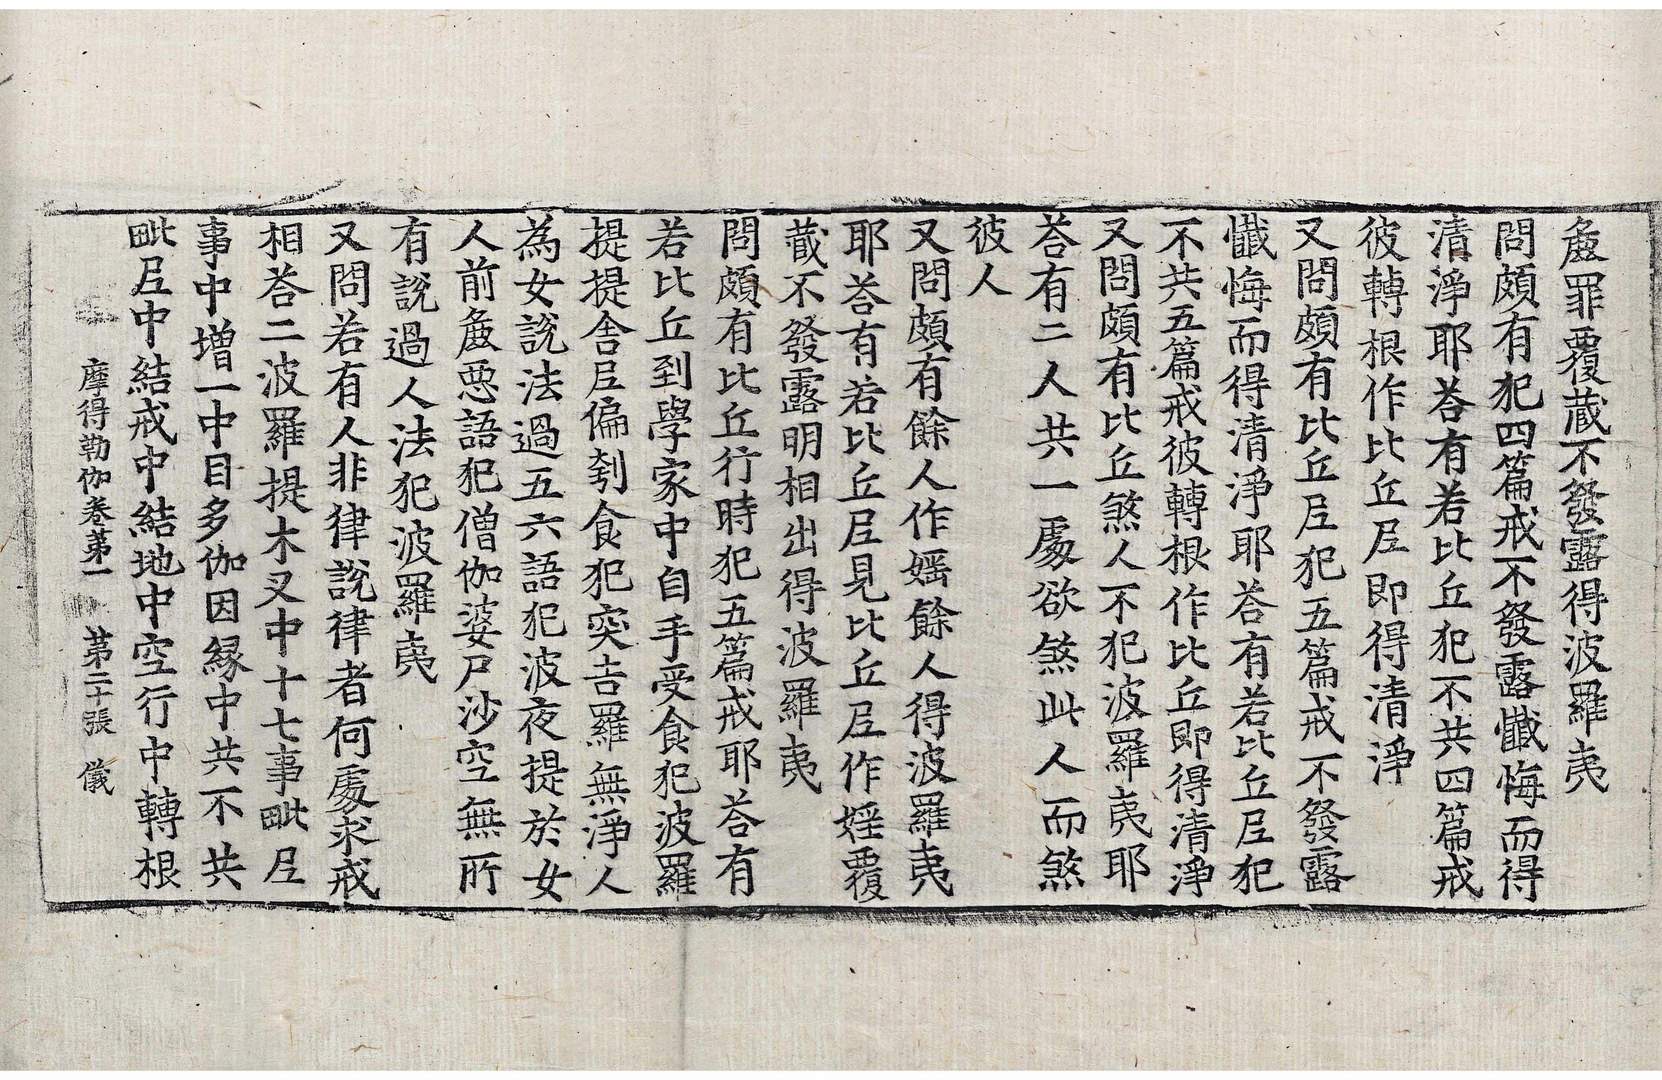 麁罪覆蔵不發露得波羅夷
問頗有犯四篇戒不發露懴悔而得
清淨耶荅有若比丘犯不共四篇戒
彼轉根作比丘尼即得清淨
又問頗有比丘尼犯五篇戒不發露
懴悔而得清淨耶荅有若比丘尼犯
不共五篇戒彼轉根作比丘即得清淨
又問頗有比丘煞人不犯波羅夷耶
荅有二人共一處欲煞此人而煞
彼人
又問頗有餘人作婬餘人得波羅夷
耶荅有若比丘尼見比丘尼作婬覆
蔵不發露明相出得波羅夷
問頗有比丘行時犯五篇戒耶荅有
若比丘到學家中自手受食犯波羅
提提舍尼偏刳食犯突吉羅無淨人
為女說法過五六語犯波夜提於女
人前麁惡語犯僧伽婆尸沙空無所
有說過人法犯波羅夷
又問若有人非律說律者何處求戒
相荅二波羅提木叉中十七事毗尼
事中增一中目多伽因縁中共不共
毗尼中結戒中結地中空行中轉根
摩得勒伽卷第一 第二十張 儀